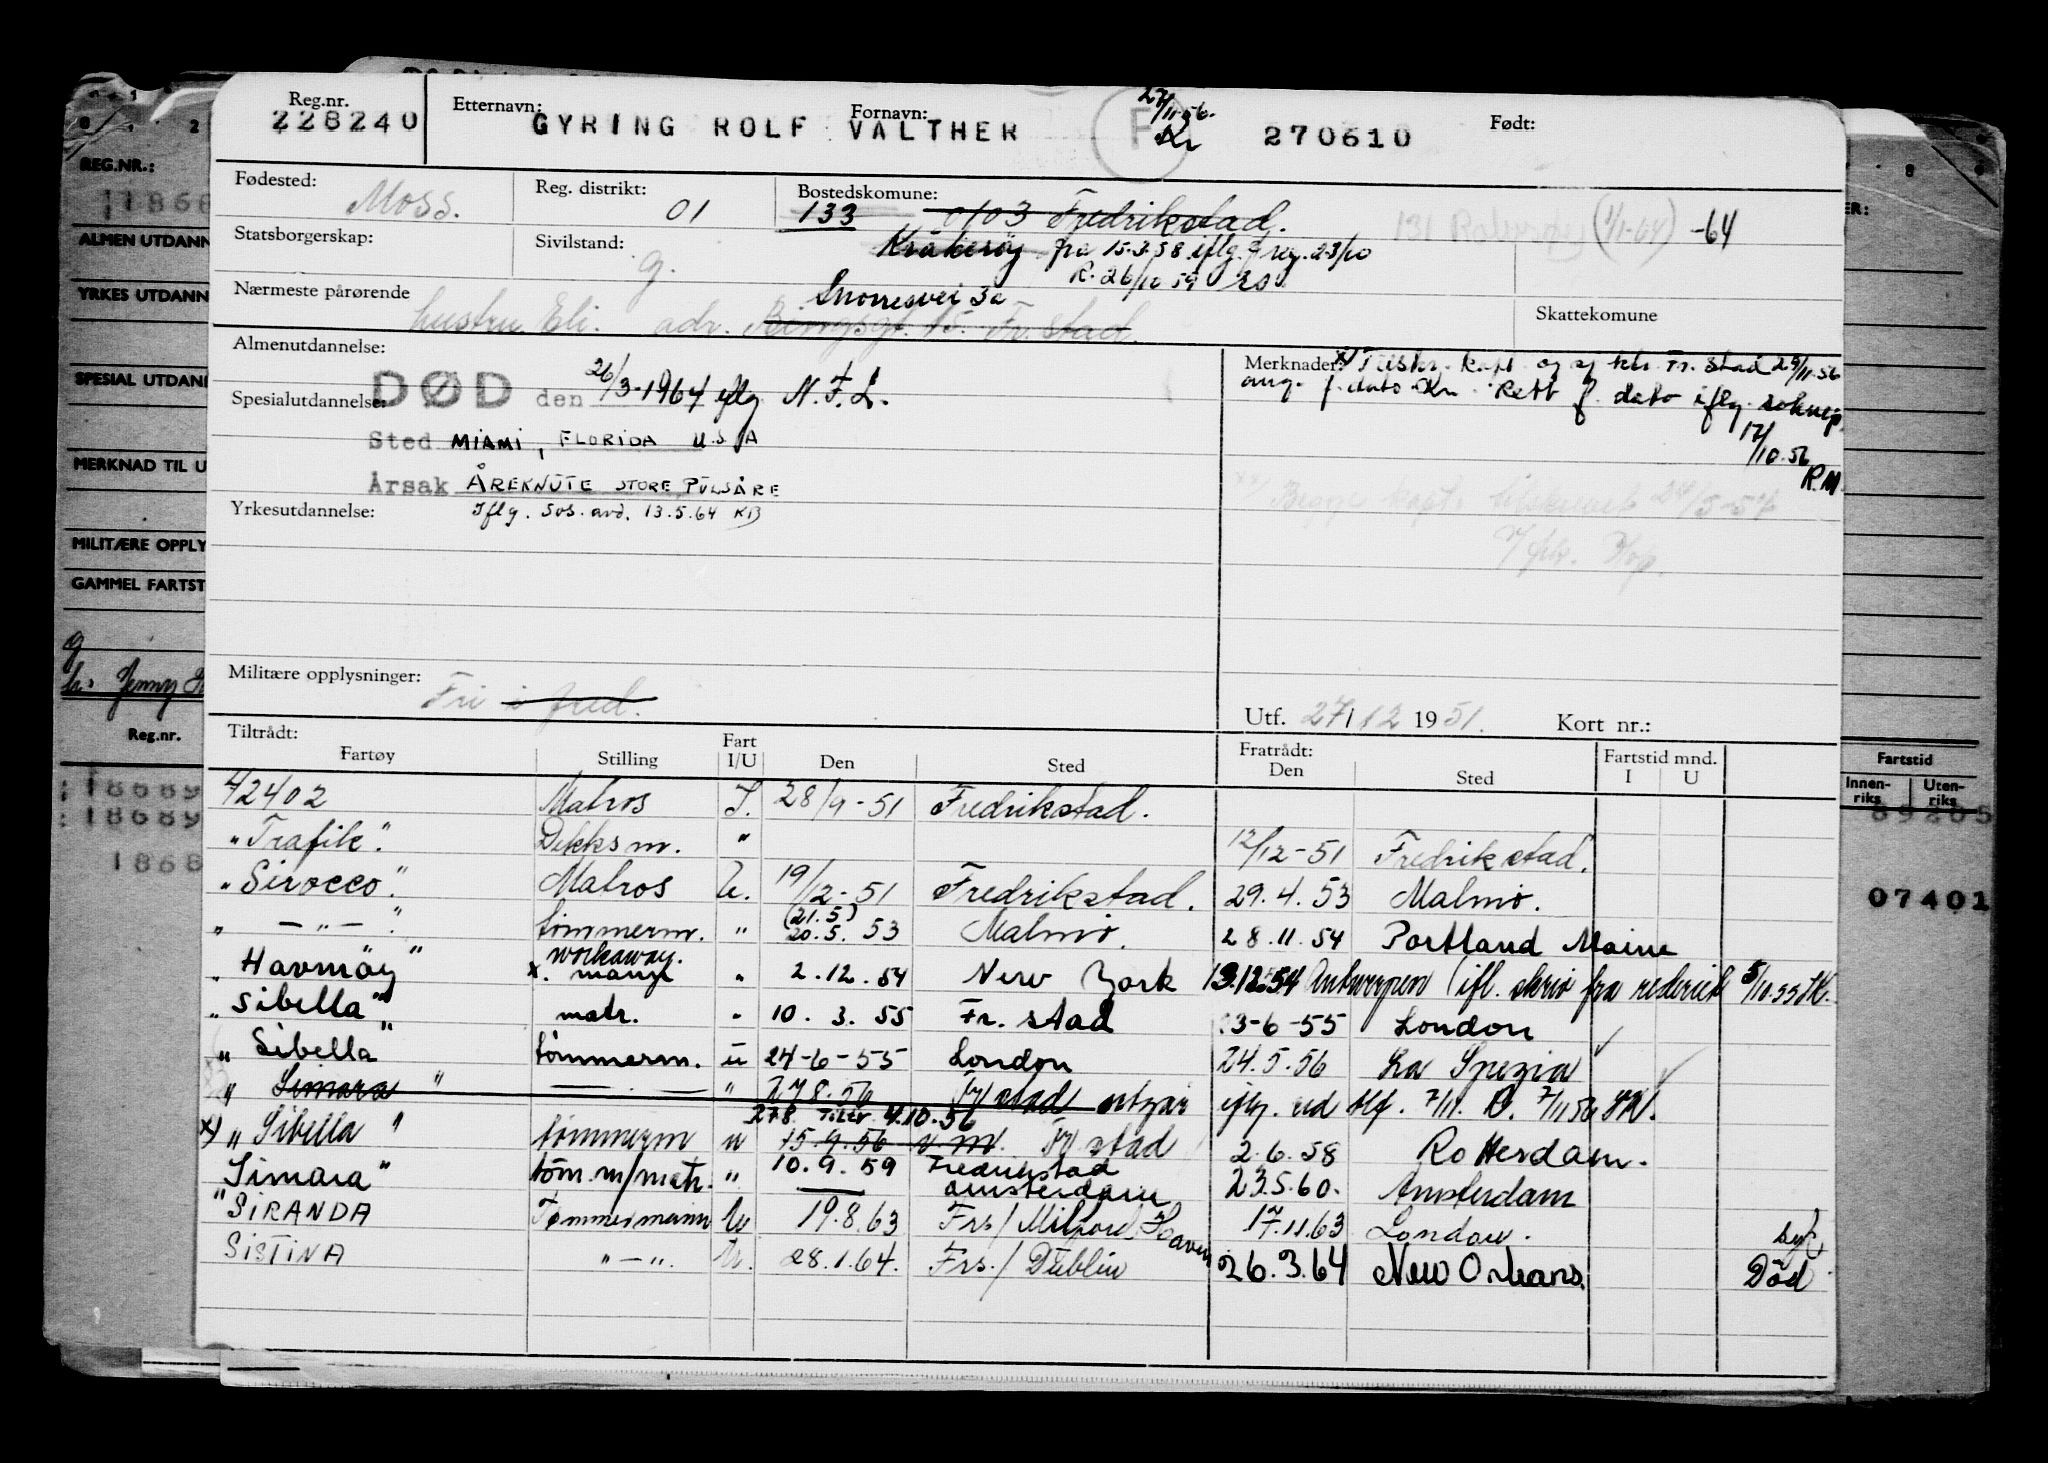 Reg.nr. Etternavn: Fornavn: 27/11-56. Født:
228240 GYRING ROLF VALTHER F Kr 270610
REG.NR.:
1868
Fødested: Moss. Reg. distrikt: 01 Bostedskomune: 133 0103 Fredrikstad. 131 (1/1-64) -64
ALMEN UTDANN
Statsborgerskap: Sivilstand: g. Kråkerøy fra 15.3.58 iflg. reg. 23/10
R. 26/10 59
YRKES UTDANN
Nærmeste pårørende Snorresvei 3a
hustru Eli. adr. Bingsgt. 15. Fr. stad. Skattekomune
Almenutdannelse: Merknader: x) Tilskr. kapt og sj ktr. Fr. stad 29/11-56
SPESIAL UTDAN
DØD den 26/3-1964 iflg N.F.L. ang. f. dato Kr. Rett f. dato iflg.
Spesialutdannelse: 17/10.56
Sted MIAMI, FLORIDA U.S.A R.M.
MERKNAD TIL U
Årsak ÅREKNUTE STORE PULSÅRE
Yrkesutdannelse: Iflg. Sos. avd. 13.5.64 KB
xx) Begge kapt. tilskrevet 24/5-57
MILITÆRE OPPLY
GAMMEL FARTST
g
h. Jenny
Militære opplysninger: Fri i fred.
Utf. 27/12 1951. Kort nr.:
Reg.nr.
Tiltrådt: Fratrådt: Fartstid mnd.
Fartøy Stilling Fart I/U Den Sted Den Sted I U
Fartstid
Innen-riks Uten-riks
18689
18689
1868
89205
07401
42402 Matros I. 28/9-51 Fredrikstad.
"Trafik". Dekksm. " 12/12-51 Fredrikstad.
"Sirocco". Matros U. 19/12-51 Fredrikstad. 29.4.53 Malmø.
" — " — ". tømmerm. " (21.5) 20.5.53 Malmø. 28.11.54 Portland Maine
"Havmøy" workaway. x. mange " 2.12.54 New York 13.12.54 Antwerpen (ifl. skriv fra rederiet 5/10.55 IK.
"Sibella" matr. " 10.3.55 Fr. stad 23-6-55 London
"Sibella" tømmerm. u 24-6-55 London 24.5.56 La Spezia
"Simara" — — " 27.8.56 Fr stad utgår iflg. ed tlf. 7/11. 7/11 56 IK.
27.8 Tiltr. 4.10.56
x) "Sibella" tømmerm u 15.9.56 Fr stad 2.6.58 Rotterdam.
Simara" tøm.m/matr. " 10.9.59 Fredrikstad Amsterdam 23.5.60. Amsterdam
"SIRANDA Tømmermann U 19.8.63 Frs./Milford Haven 17.11.63 London. syk
SISTINA " — ". U. 28.1.64. Frs./Dublin 26.3.64 New Orleans. Død